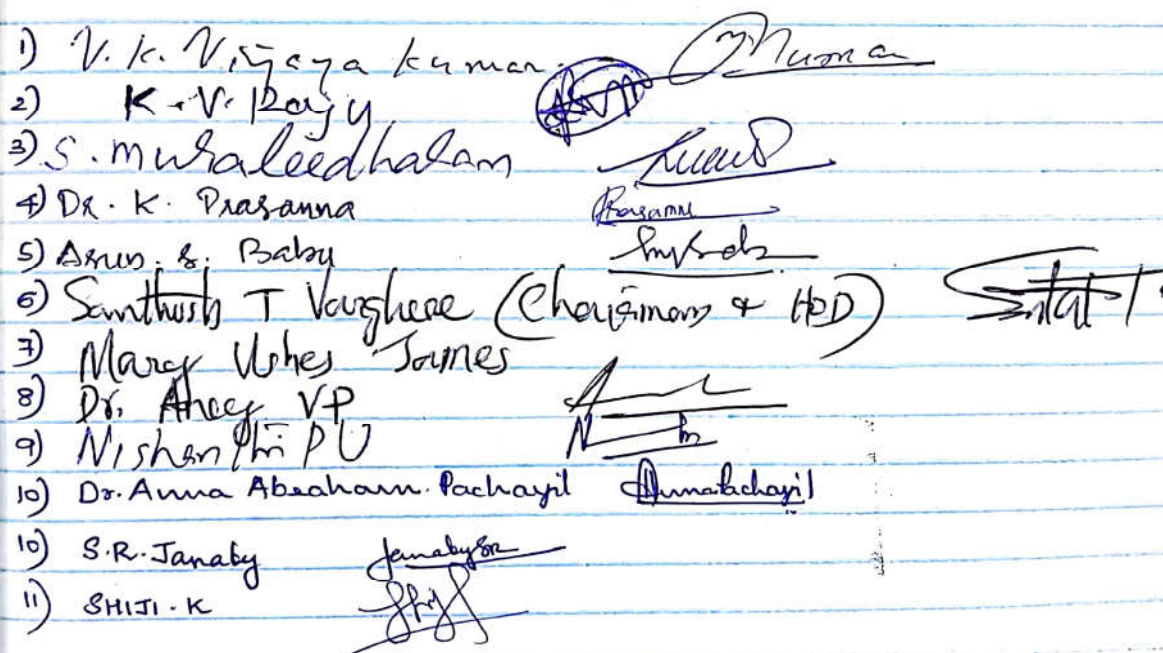 1) V. K. Vijaya kumar.
2) K. V. Raju
3) S. muraleedharan
4) Dr. K. Prasanna Prasanna
5) Arun. S. Baby
6) Santhosh T Varghese (Chairman & HOD)
7) Mary Ushes James
8) Dr. Aneey VP
9) Nishanthi P U
10) Dr. Anna Abraham. Pachayil Annapachayil
10) S.R. Janaby JanabySR
11) SHIJI. K Shiji